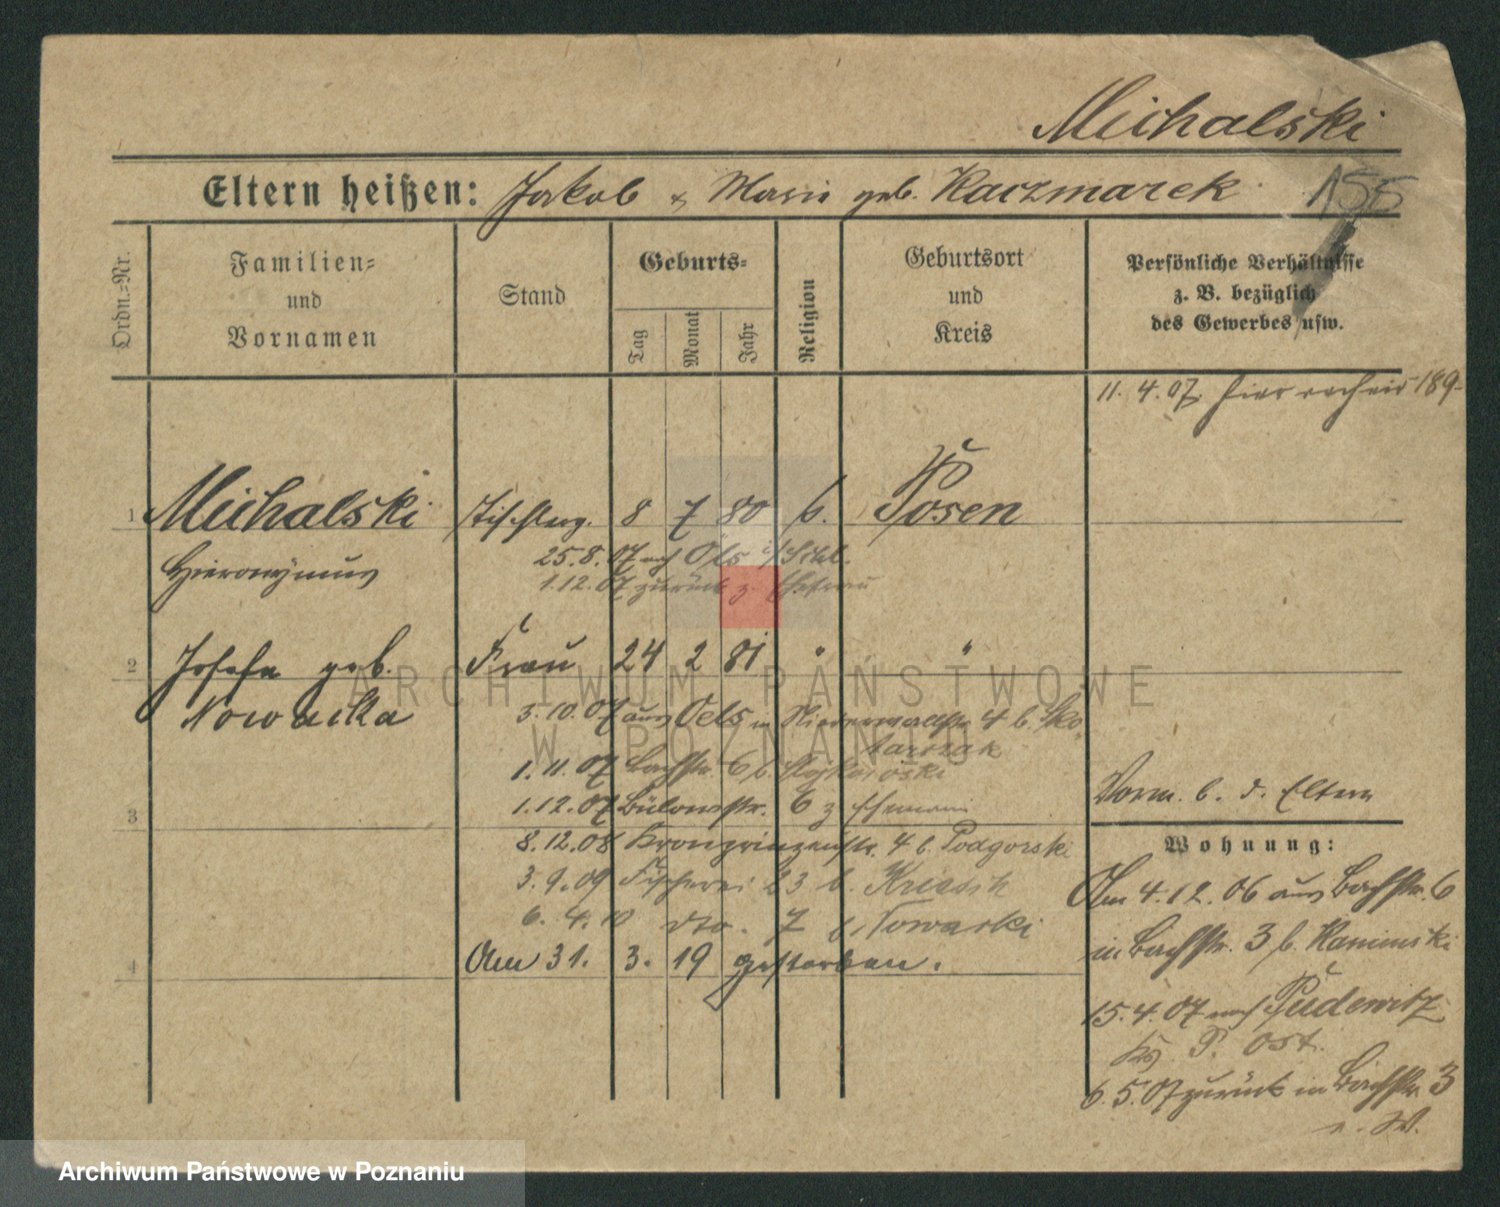 Michalski
Eltern heißen: Jakob & Marie geb. Kaczmarek 155
Ordn.-Nr.
Familien-
und
Vornamen
Stand
Geburts-
Tag
Monat
Jahr
Religion
Geburtsort
und
Kreis
Persönliche Verhältnisse
z. B. bezüglich
des Gewerbes usw.
11. 4. 07. hier 189
1 Michalski Tischlerg. 8 7 80 k. Posen
Hieronymus
25. 8. 07 nach Öls i/Schl.
1. 12. 07 zurück z. Ehefrau
2 Josefa geb. Frau 24 2 81 " "
Nowacka
3. 10. 07 aus Oels in 4 b.
1. 11. 07 Bachstr. 6 b.
Vorm. b. d. Eltern
3
1. 12. 07 Bülowstr. 6 z Ehemann
8. 12. 08 Kronprinzenstr. 4 b. Podgorski
3. 9. 09 Fischerei 23 b.
6. 4. 10 dto. 7 b.
4
Am 31. 3. 19 gestorben.
Wohnung:
Am 4. 12. 06 aus Bachstr. 6
in Bachstr. 3 b. Kaminski
15. 4. 07 nach Pudewitz
Krs. P. Ost.
6. 5. 07 zurück in Bachstr. 3
ARCHIWUM PAŃSTWOWE
W POZNANIU
Archiwum Państwowe w Poznaniu